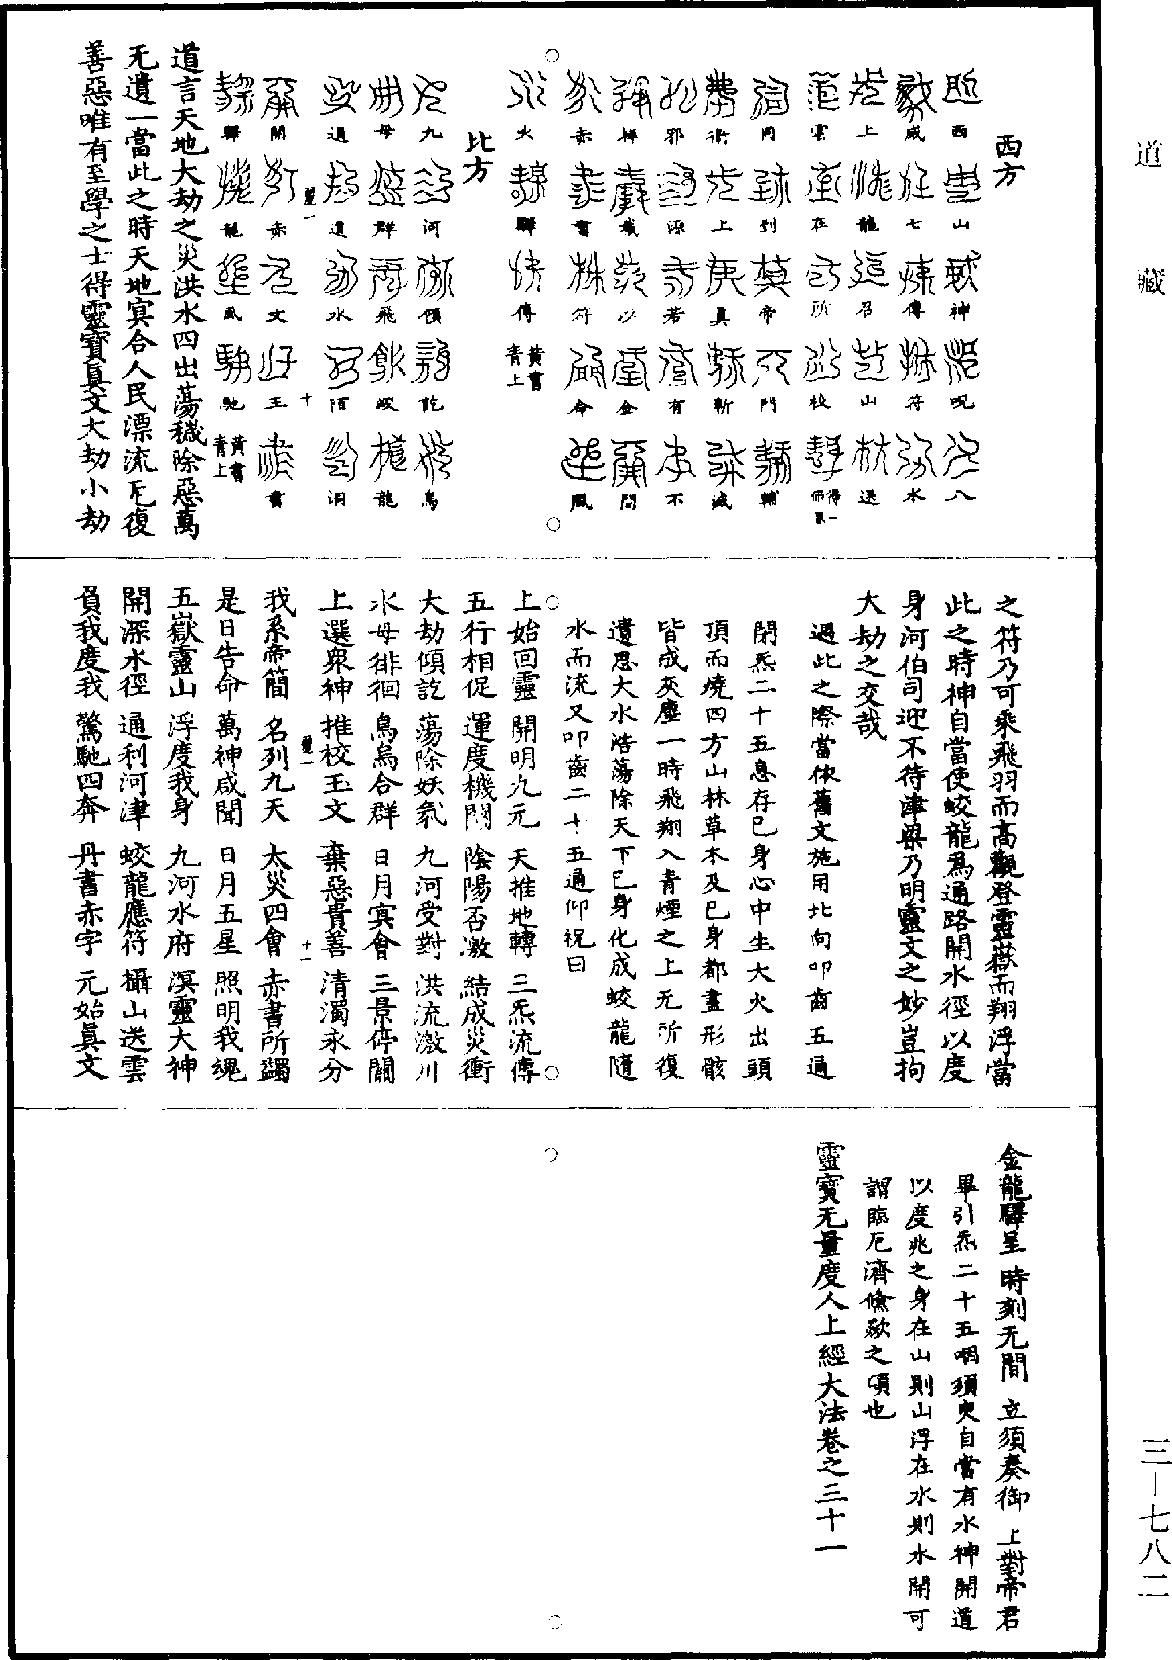 道藏
三—七八二
西方
西山神呪八
威七傳符水
上龍召山送
雲在所校得一佩
罔列帝門輔
衛上真斬滅
邪源若有不
祥截以金間
赤書符命風
火驛傳黃書青上
比方
九河傾訖鳥
母群飛蛟龍
通道水陌洞
開赤文玉書
驛龍風馳黃書青上
道言天地大劫之災洪水四出蕩穢除惡萬
无遺一當此之時天地冥合人民漂流无復
善惡唯有至學之士得靈寶真文大劫小劫
之符乃可乘飛羽而高觀登靈嶽而翔浮當
此之時神自當使蛟龍爲通路開水徑以度
身河伯司迎不待津梁乃明靈文之妙豈拘
大劫之交哉
過此之際當依舊文施用北向叩齒五通
閉炁二十五息存己身心中生大火出頭
頂而燒四方山林草木及己身都盡形骸
皆成灰塵一時飛翔入青煙之上无所復
遺思大水浩蕩除天下己身化成蛟龍隨
水而流又叩齒二十五通仰祝曰
上始回靈 開明九元 天推地轉 三炁流傳
五行相促 運度機關 陰陽否激 結成災衝
大劫傾訖 蕩除妖氛 九河受對 洪流激川
水母徘徊 鳥烏合群 日月冥會 三景停關
上選衆神 推校玉文 棄惡貴善 清濁永分
我系帝簡 名列九天 太災四會 赤書所蠲
是日告命 萬神咸聞 日月五星 照明我魂
五嶽靈山 浮度我身 九河水府 溟靈大神
開深水徑 通利河津 蛟龍應符 攝山送雲
負我度我 驚馳四奔 丹書赤字 元始眞文
金龍驛呈 時刻无間 立須奏御 上對帝君
畢引炁二十五咽須臾自當有水神開道
以度兆之身在山則山浮在水則水開可
謂臨厄濟儵歘之頃也
靈寶无量度人上經大法卷之三十一